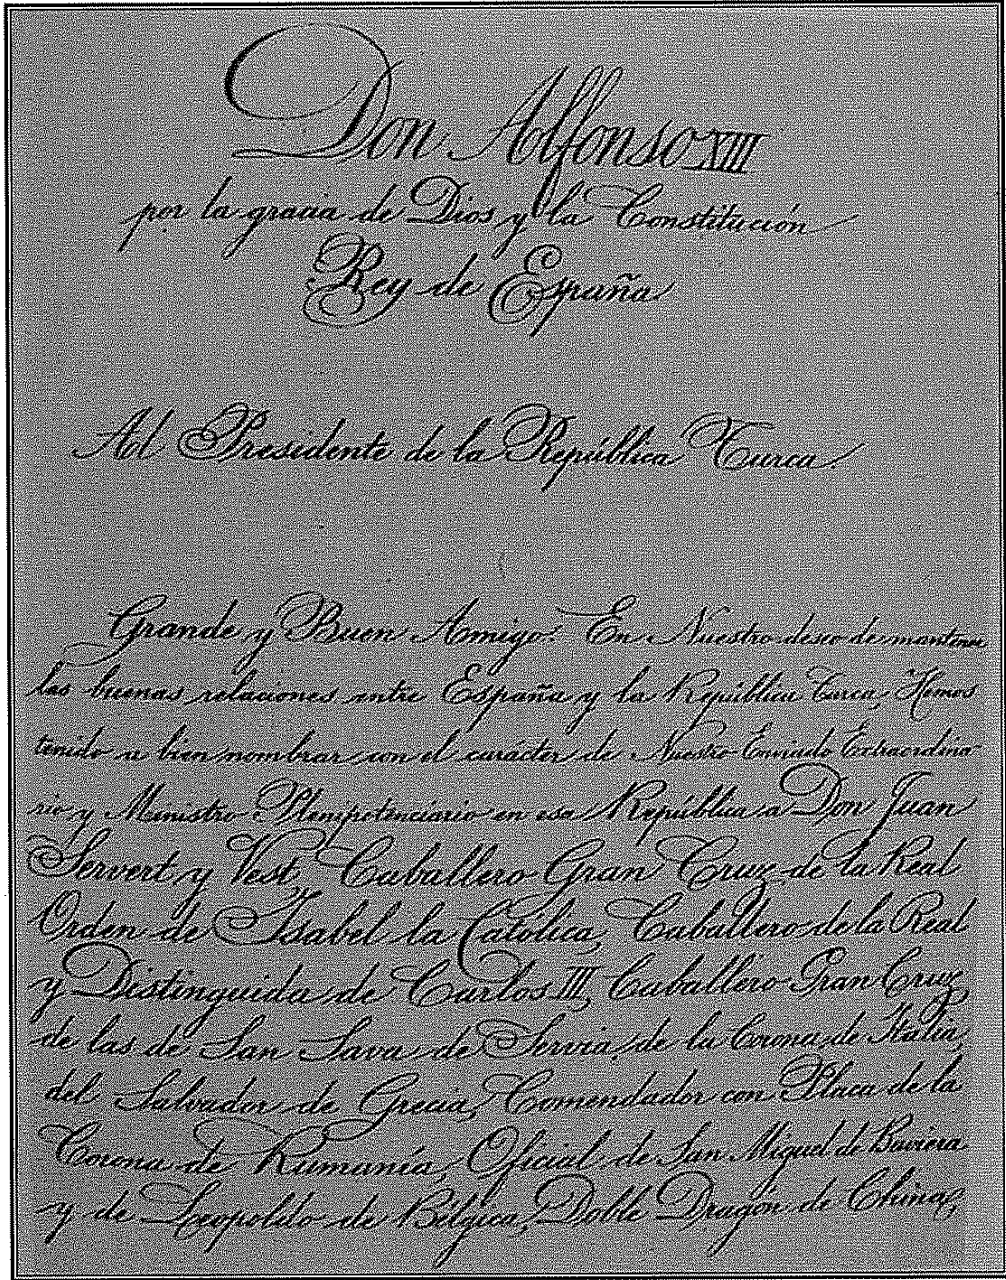 Don Alfonso XIII
por la gracia de Dios y la Constitución
Rey de España
Al Presidente de la República Turca.
Grande y Buen Amigo: En Nuestro deseo de mantener
las buenas relaciones entre España y la República Turca, Hemos
tenido a bien nombrar con el carácter de Nuestro Enviado Extraordina-
rio y Ministro Plenipotenciario en esa República a Don Juan
Servert y Vest, Caballero Gran Cruz de la Real
Orden de Isabel la Católica, Caballero de la Real
y Distinguida de Carlos III, Caballero Gran Cruz
de las de San Sava de Servia, de la Corona de Italia,
del Salvador de Grecia, Comendador con Placa de la
Corona de Rumanía, Oficial de San Miguel de Baviera
y de Leopoldo de Bélgica, Doble Dragón de China,